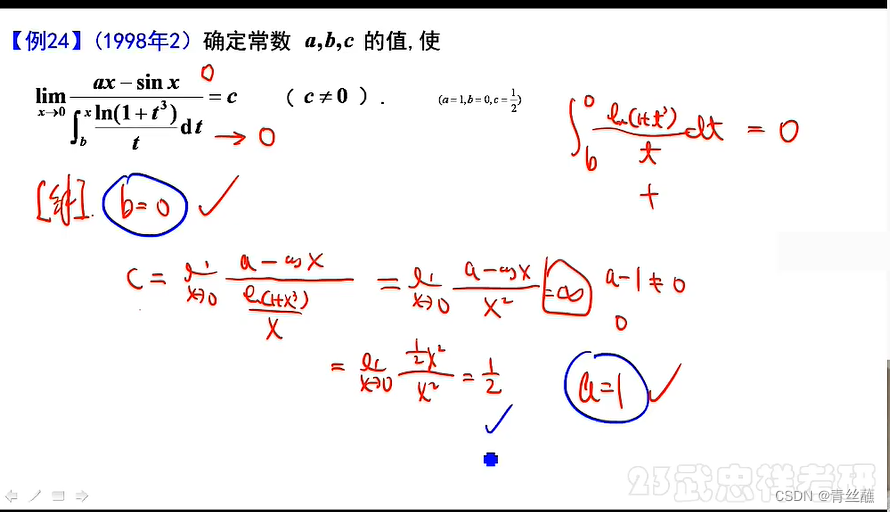 【例24】(1998年2) 确定常数 a,b,c 的值,使
lim x→0 (ax − sin x) / (∫_b^x ln(1+t³)/t dt) = c ( c ≠ 0 ). (a=1,b=0,c=1/2)
0
→ 0
∫_b^0 ln(1+t³)/t dt = 0
+
[解]. b=0 ✓
c = lim x→0 (a − cos x) / (ln(1+x³)/x) = lim x→0 (a − cos x) / x² = ∞ a−1 ≠ 0
0
= lim x→0 (½x²) / x² = 1/2 a=1 ✓
✓
23武忠祥考研
CSDN @青丝蘸